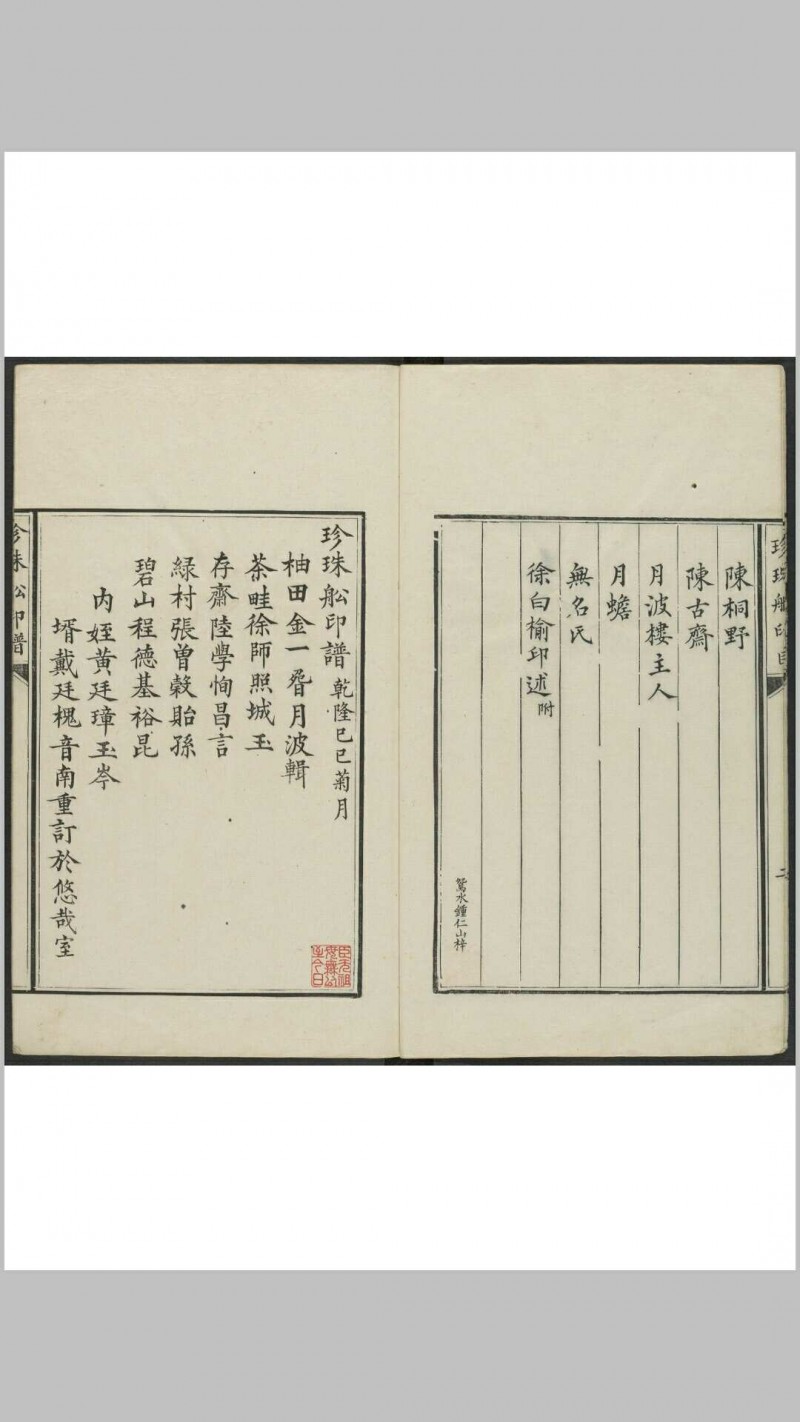 珍珠船印目
二
陳桐野
陳古齋
月波樓主人
月蟾
無名氏
徐白榆印述附
鴛水鍾仁山梓
珍珠舩印譜 乾隆己巳菊月
柚田金一𤱶月波輯
茶畦徐師照城玉
存齋陸學恂昌言
綠村張曽穀貽孫
碧山程德基裕昆
內姪黃廷璋玉岑
壻戴廷槐音南重訂於悠哉室
珍珠舩印譜